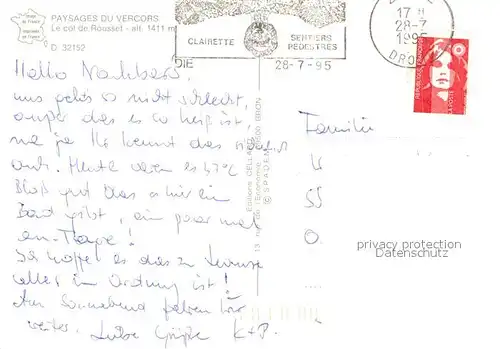 PAYSAGES DU VERCORS
Le col de Rousset - alt. 1411 m
D 32152
CLAIRETTE
SENTIERS
PEDESTRES
DIE
28-7-95
17 H
28-7
1995
DROME
REPUBLIQUE FRANÇAISE
LA POSTE
Hallo Nachbarn,
uns geht's nicht schlecht,
außer das es so heiß ist,
na ja Ihr kennt das
auch. Heute waren es 37°C
Bloß gut das es hier ein
Bad gibt, ein paar mal
am Tage!
Ich hoffe es das zu Hause
alles in Ordnung ist!
Am Sonnabend fahren wir
weiter. Liebe Grüße K+P.
Editions CELLARD
13, rue de l'Economie, 69500 BRON
© SPADEM
Familie
privacy protection
Datenschutz